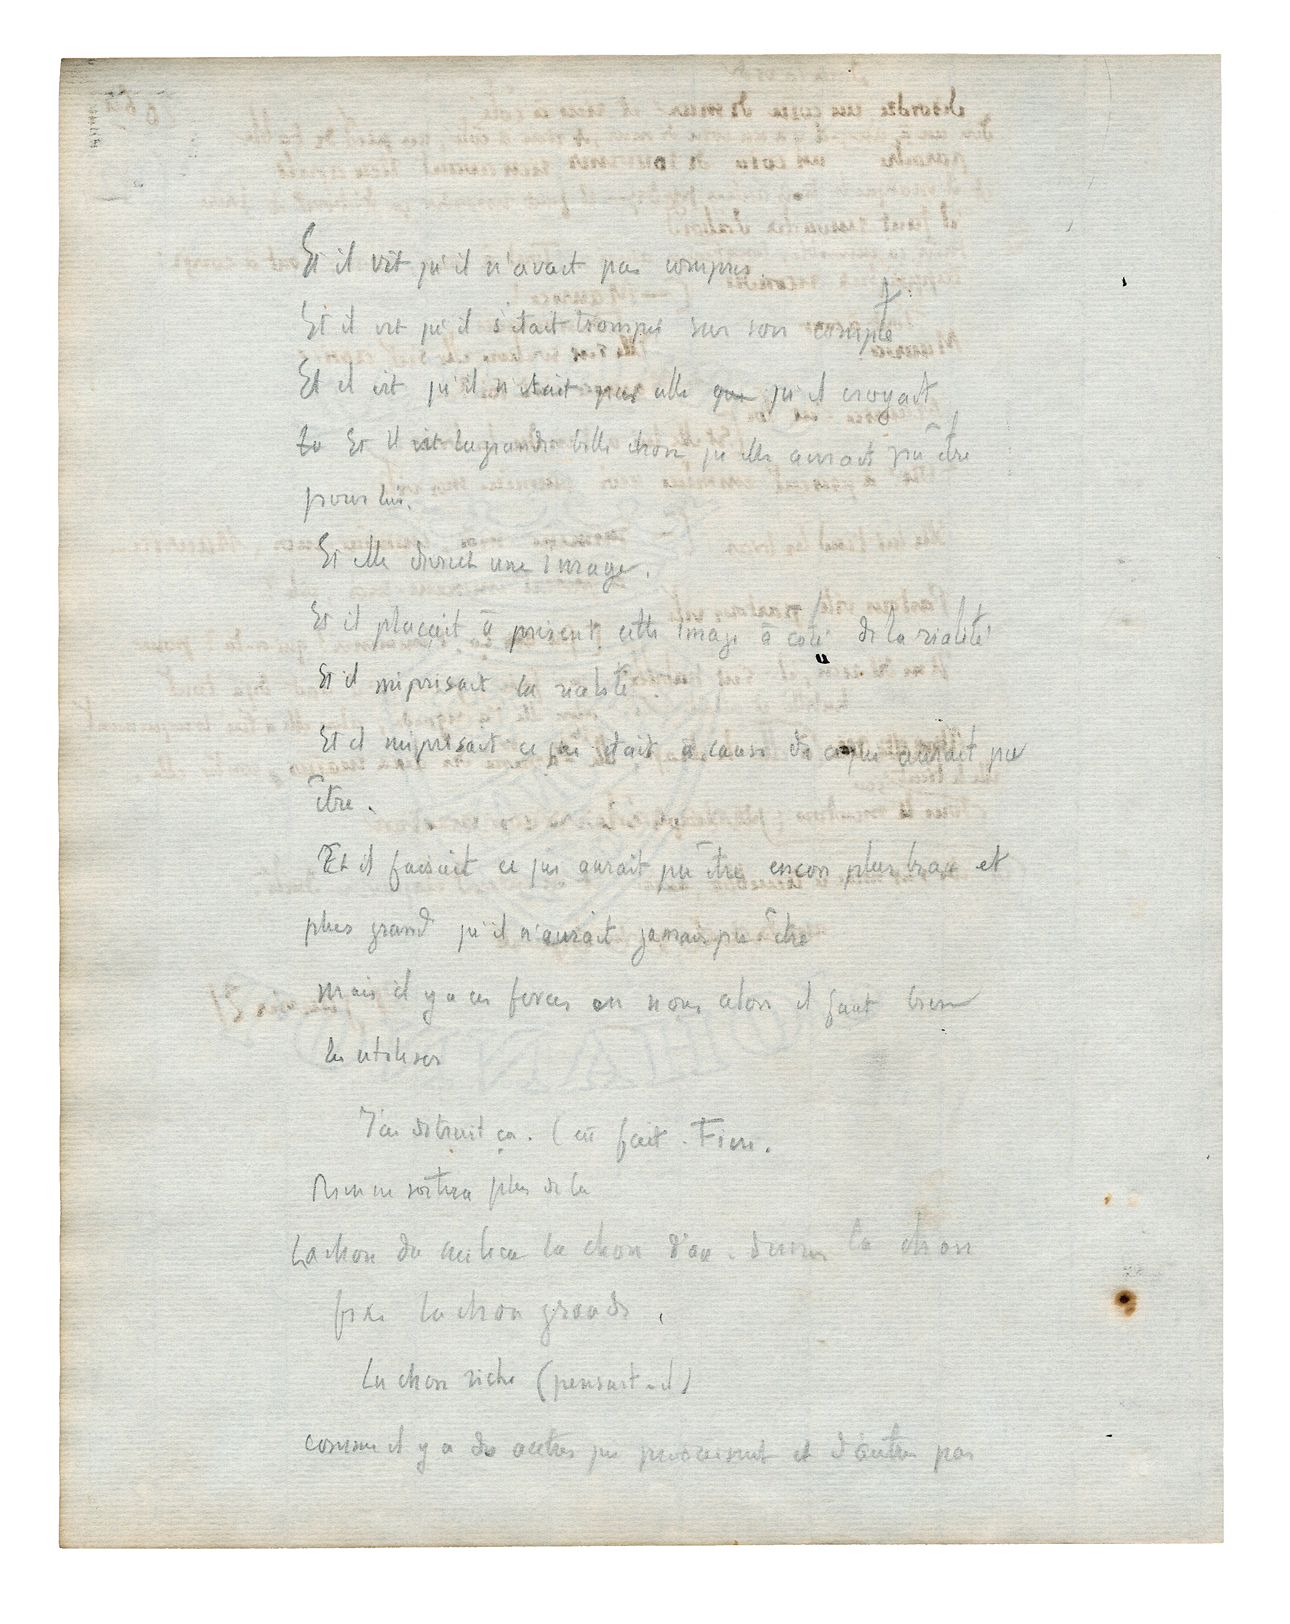 Et il vit qu'il n'avait pas compris
Et il vit qu'il s'était trompé sur son compte
Et il vit qu'il n'était pas celle que qu'il croyait
Et il vit la grande belle chose qu'elle aurait pu être
pour lui.
Et elle devint une image.
Et il plaçait à présent cette image à côté de la réalité
Et il méprisait la réalité.
Et il méprisait ce qui était à cause de ce qui aurait pu
être.
Et il faisait ce qui aurait pu être encore plus beau et
plus grand qu'il n'aurait jamais pu être
mais il y a ces forces en nous alors il faut bien
les utiliser
J'ai détruit ça. C'est fait. Fini.
Rien ne sortira plus de là
La chose du milieu la chose d'où la chose
fixe la chose grande.
La chose riche (pensait-il)
comme il y a des qui et d'autres pas